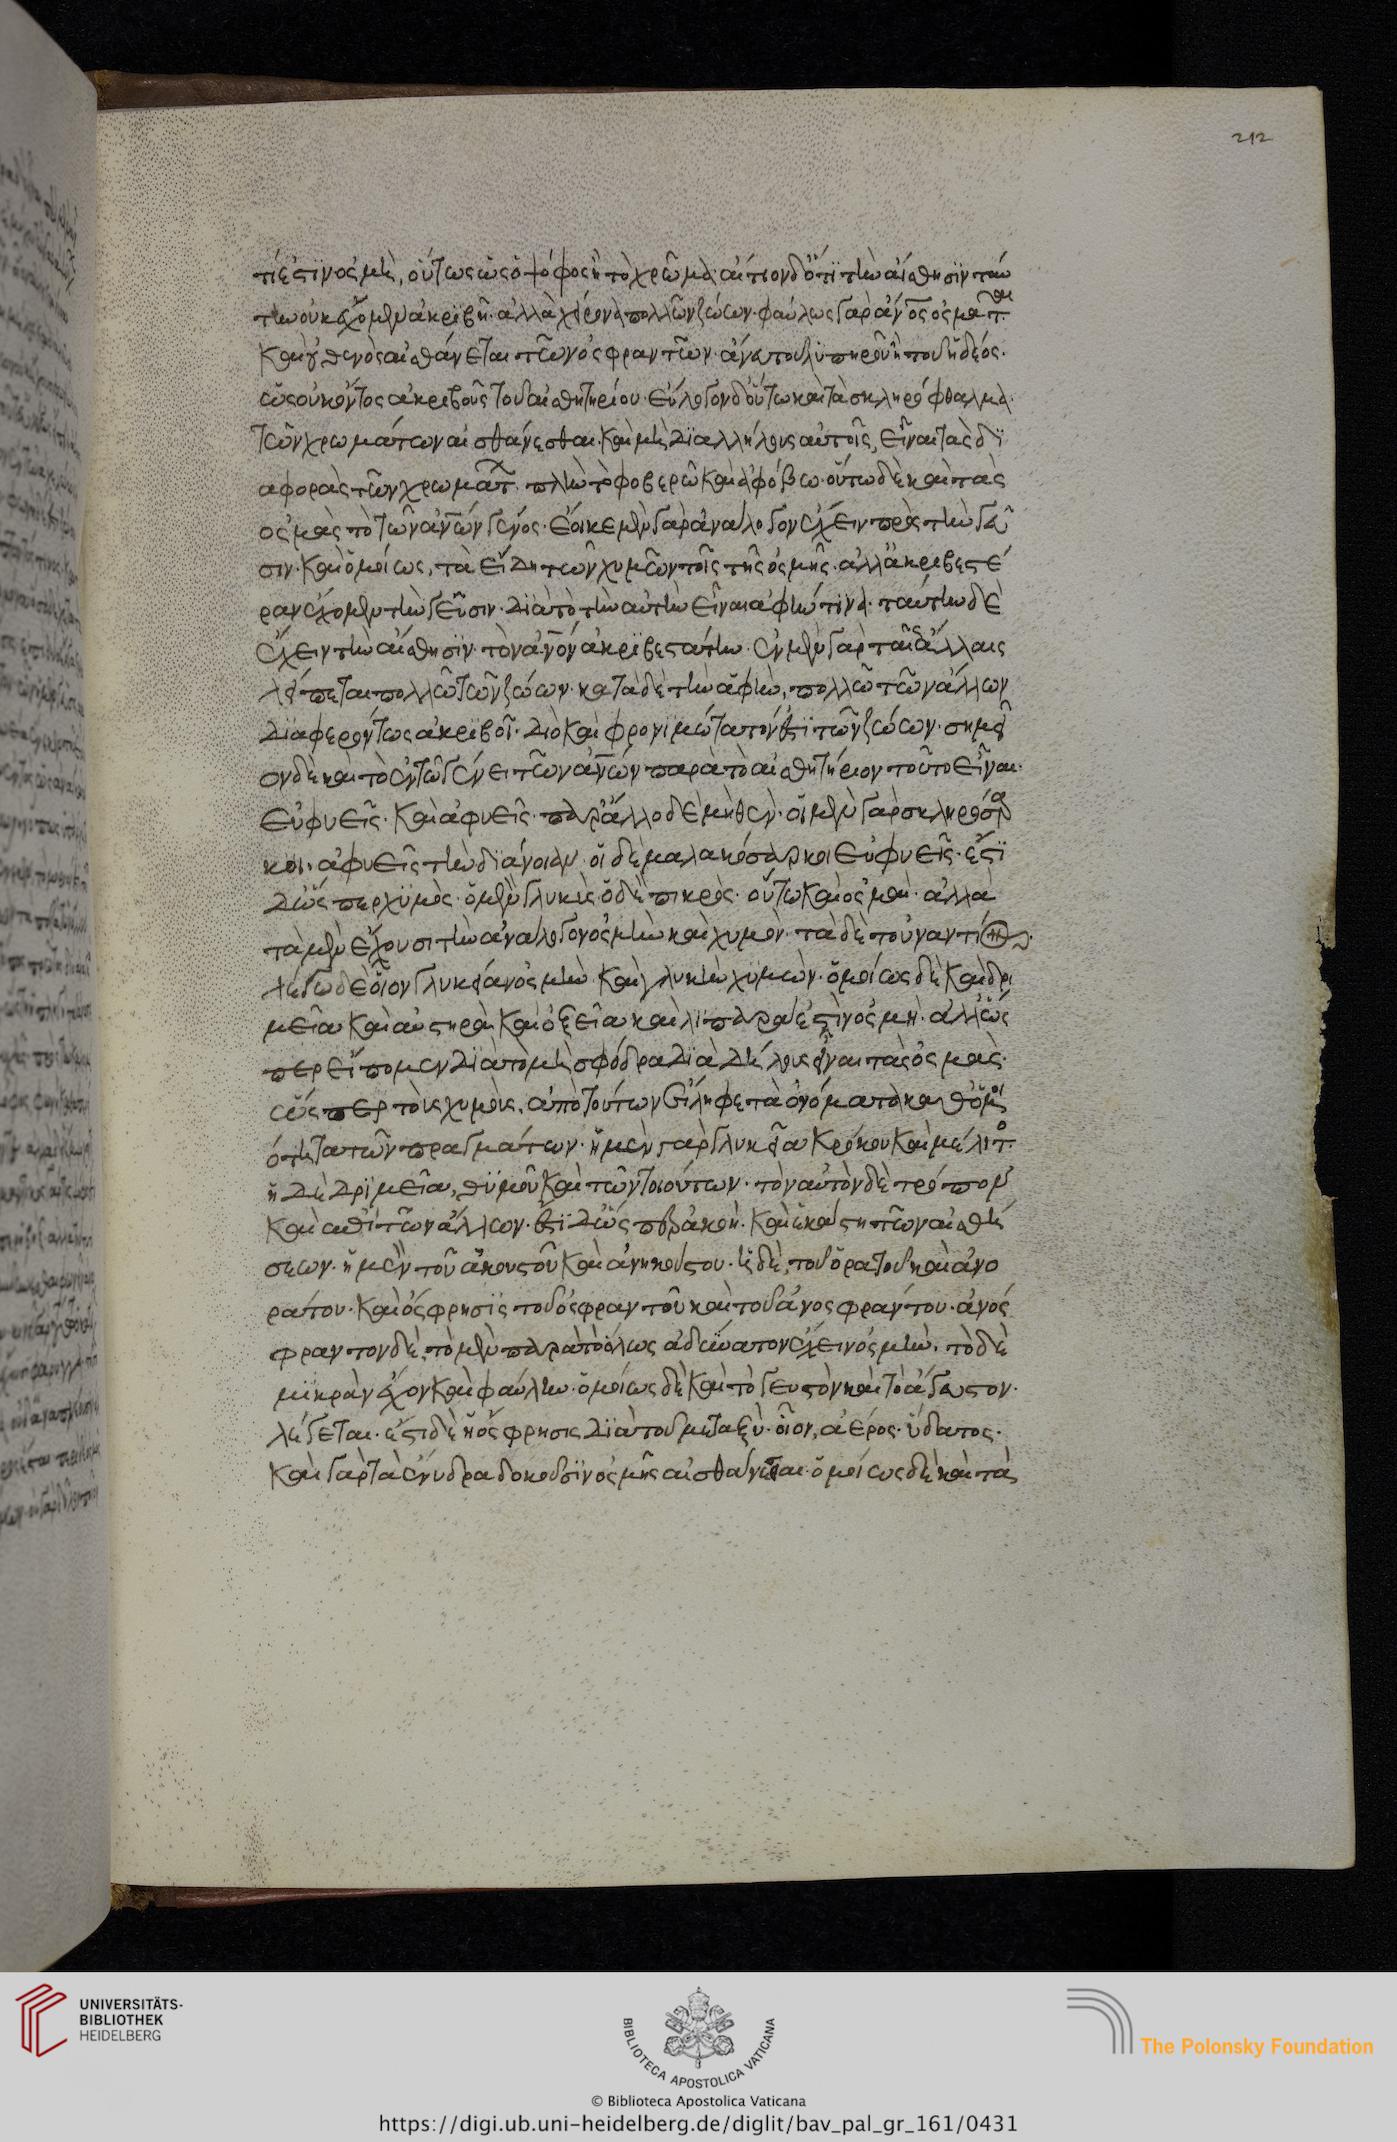 212
τί ἐστὶν ὀσμὴ, οὕτως ὡς ὁ ψόφος ἢ τὸ χρῶμα· αἴτιον δ' ὅτι τὴν αἴσθησιν ταύ
την οὐκ ἔχομεν ἀκριβῆ· ἀλλὰ χείρονα πολλῶν ζώων· φαύλως γὰρ ἄνος ὀσμᾶτ
καὶ οὐθενὸς αἰσθάνεται τῶν ὀσφραντῶν· ἄνευ τοῦ λυπηροῦ ἢ τοῦ ἡδέος·
ὡς οὐκ ὄντος ἀκριβοῦς τοῦ αἰσθητηρίου· εὔλογον δ' οὕτω καὶ τὰ σκληρόφθαλμα
τῶν χρωμάτων αἰσθάνεσθαι· καὶ μὴ διαλλήλους αὐτοῖς, εἶναι τὰς δι
αφορὰς τῶν χρωμάτ. πλὴν τῷ φοβερῶ καὶ ἀφόβω· οὕτω δὲ καὶ τὰς
ὀσμὰς τὸ τῶν ἀνων γένος· ἔοικε μὲν γὰρ ἀνάλογον ἔχειν πρὸς τὴν γεῦ
σιν· καὶ ὁμοίως, τὰ εἴδη τῶν χυμῶν τοῖς τῆς ὀσμῆς· ἀλλ' ἀκριβεστέ
ραν ἔχομεν τὴν γεῦσιν· διὰ τὸ τὴν αὐτὴν εἶναι ἁφήν τινα· ταύτην δὲ
ἔχειν τὴν αἴσθησιν τὸν ἄνον ἀκριβεστάτην· ἐν μὲν γὰρ ταῖς ἄλλαις
λείπεται πολλῶ τῶν ζώων· κατὰ δὲ τὴν ἁφὴν, πολλῶ τῶν ἄλλων
διαφερόντως ἀκριβοῖ· διὸ καὶ φρονιμώτατον ἐστὶ τῶν ζώων· σημεῖ
ον δὲ καὶ τὸ ἐν τῶ γένει τῶν ἀνων παρὰ τὸ αἰσθητήριον τοῦτο εἶναι·
εὐφυεῖς· καὶ ἀφυεῖς· παρ' ἄλλο δὲ μηθέν· οἱ μὲν γὰρ σκληρόσαρ
κοι· ἀφυεῖς τὴν διάνοιαν· οἱ δὲ μαλακόσαρκοι εὐφυεῖς· ἔστι
δ' ὥσπερ χυμὸς· ὁ μὲν γλυκὺς ὁ δὲ πικρὸς· οὕτω καὶ ὀσμαὶ· ἀλλὰ
τὰ μὲν ἔχουσι τὴν ἀνάλογον ὀσμὴν καὶ χυμὸν· τὰ δὲ τοὐναντίον·
λέγω δὲ οἷον γλυκεῖαν ὀσμὴν καὶ γλυκὴν χυμὸν· ὁμοίως δὲ καὶ δρι
μεῖα καὶ αὐστηρὰ καὶ ὀξεῖα καὶ λιπαρά ἐστὶν ὀσμή· ἀλλ' ὥσ
περ εἴπομεν διὰ τὸ μὴ σφόδρα διὰ δήλους εἶναι τὰς ὀσμὰς·
ὥσπερ τοὺς χυμοὺς, ἀπὸ τούτων εἴληφε τὰ ὀνόματα καθ' ὁμοι
ότητα τῶν πραγμάτων· ἡ μὲν γὰρ γλυκεῖα κρόκου καὶ μέλιτ
ἡ δὲ δριμεῖα, θύμου καὶ τῶν τοιούτων· τὸν αὐτὸν δὲ τρόπον
καὶ ἐπὶ τῶν ἄλλων· ἔστι δ' ὥσπερ ἀκοὴ· καὶ ἑκάστη τῶν αἰσθή
σεων· ἡ μὲν τοῦ ἀκουστοῦ καὶ ἀνηκούστου· ἡ δὲ, τοῦ ὁρατοῦ καὶ ἀο
ράτου· καὶ ὄσφρησις τοῦ ὀσφραντοῦ καὶ τοῦ ἀνοσφράντου· ἀνόσ
φραντον δὲ, τὸ μὲν παρὰ τὸ ὅλως ἀδύνατον ἔχειν ὀσμὴν. τὸ δὲ
μικρὰν ἔχον καὶ φαύλην· ὁμοίως δὲ καὶ τὸ γευστὸν καὶ τὸ ἄγευστον·
λέγεται· ἔστι δὲ ἡ ὄσφρησις διὰ τοῦ μεταξὺ· οἷον, ἀέρος· ὕδατος·
καὶ γὰρ τὰ ἔνυδρα δοκοῦσιν ὀσμῆς αἰσθάνεσθαι· ὁμοίως δὲ καὶ τὰ
UNIVERSITÄTS-
BIBLIOTHEK
HEIDELBERG
BIBLIOTECA APOSTOLICA VATICANA
The Polonsky Foundation
© Biblioteca Apostolica Vaticana
https://digi.ub.uni-heidelberg.de/diglit/bav_pal_gr_161/0431